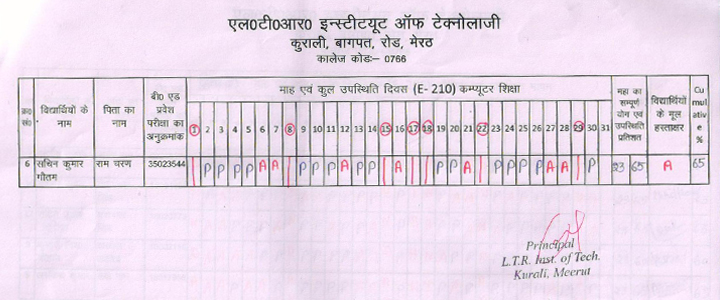 एल0टी0आर0 इन्स्टीटयूट ऑफ टेक्नोलाजी
कुराली, बागपत, रोड, मेरठ
कालेज कोडः– 0766
क्र0 सं0 विद्यार्थियों के नाम पिता का नाम बी0 एड प्रवेश परीक्षा का अनुक्रमांक माह एवं कुल उपस्थिति दिवस (E- 210) कम्प्यूटर शिक्षा महा का सम्पूर्ण योग एवं उपस्थिति प्रतिशत विद्यार्थियों के मूल हस्ताक्षर Cumulative %
1 2 3 4 5 6 7 8 9 10 11 12 13 14 15 16 17 18 19 20 21 22 23 24 25 26 27 28 29 30 31
6 सचिन कुमार गौतम राम चरण 35023544 P P P P A A P P P A P P A P P A P P P P A A P 23 65 A 65
Principal
L.T.R. Inst. of Tech.
Kurali, Meerut